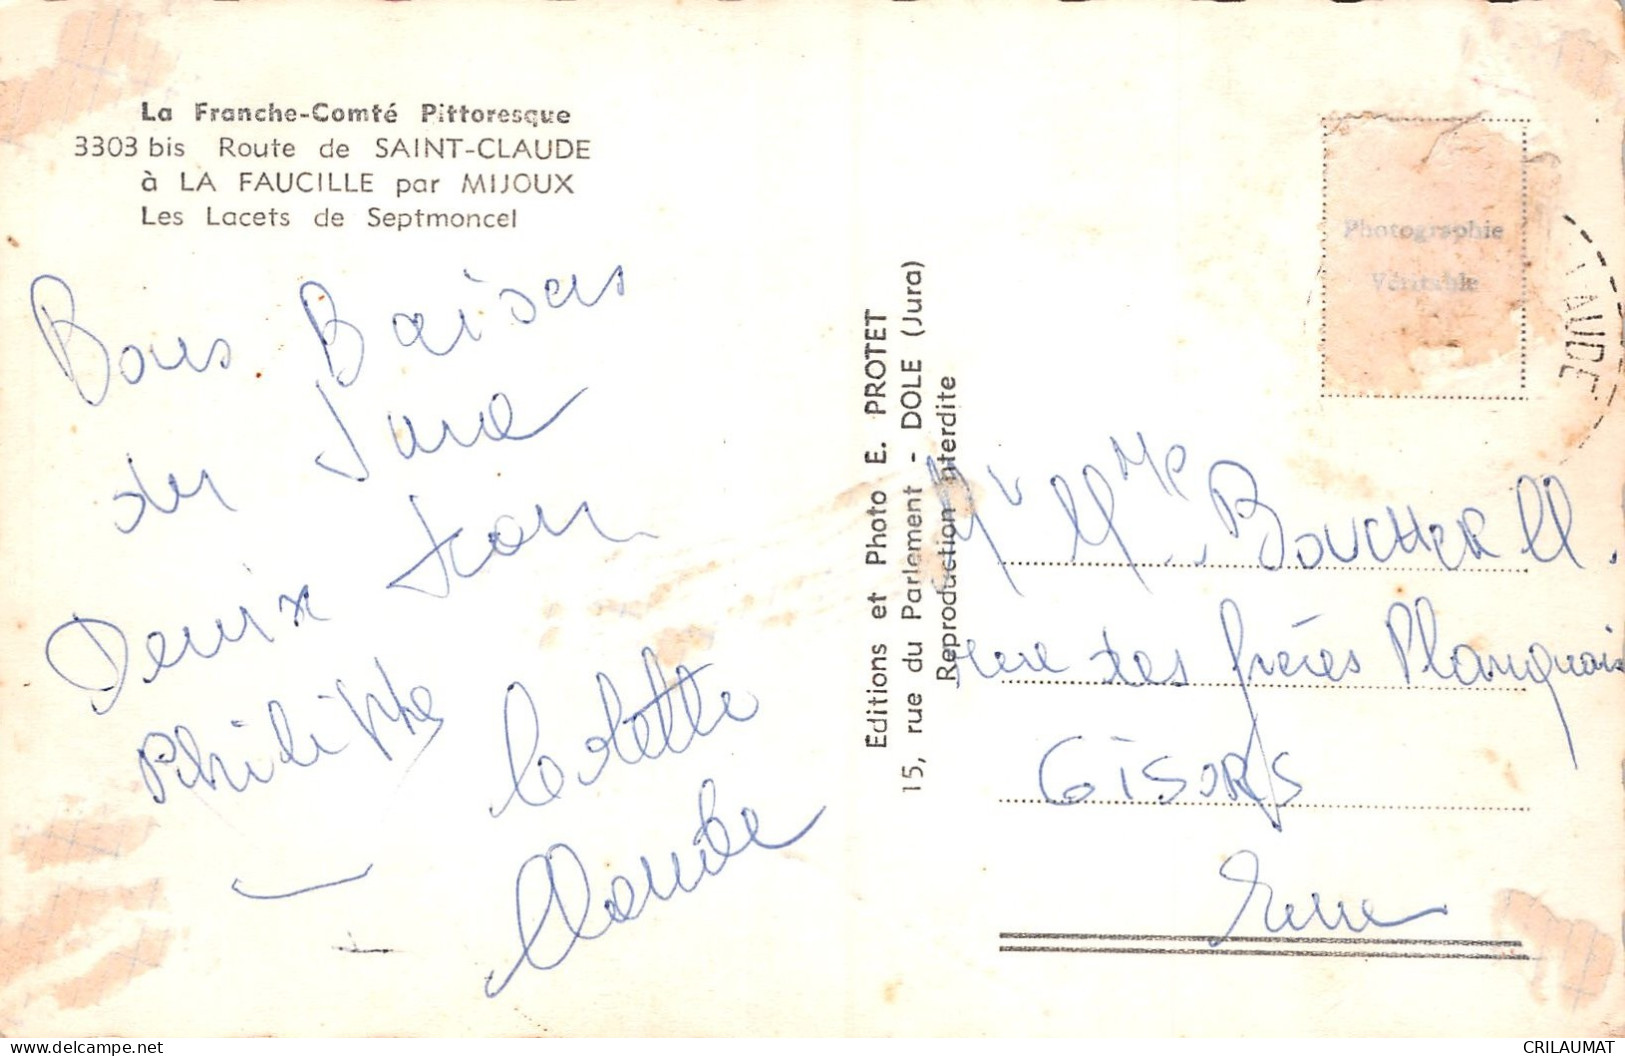 La Franche-Comté Pittoresque
3303 bis Route de SAINT-CLAUDE
à LA FAUCILLE par MIJOUX
Les Lacets de Septmoncel
Bons Baisers
du Jura
Jean
Philippe Colette
Claude
Editions et Photo E. PROTET
15, rue du Parlement - DOLE (Jura)
Reproduction Interdite
Photographie
Véritable
AUDE
Mr M Me BOUCHER M.
rue des frères Planquais
GISORS
Eure
delcampe.net
CRILAUMAT